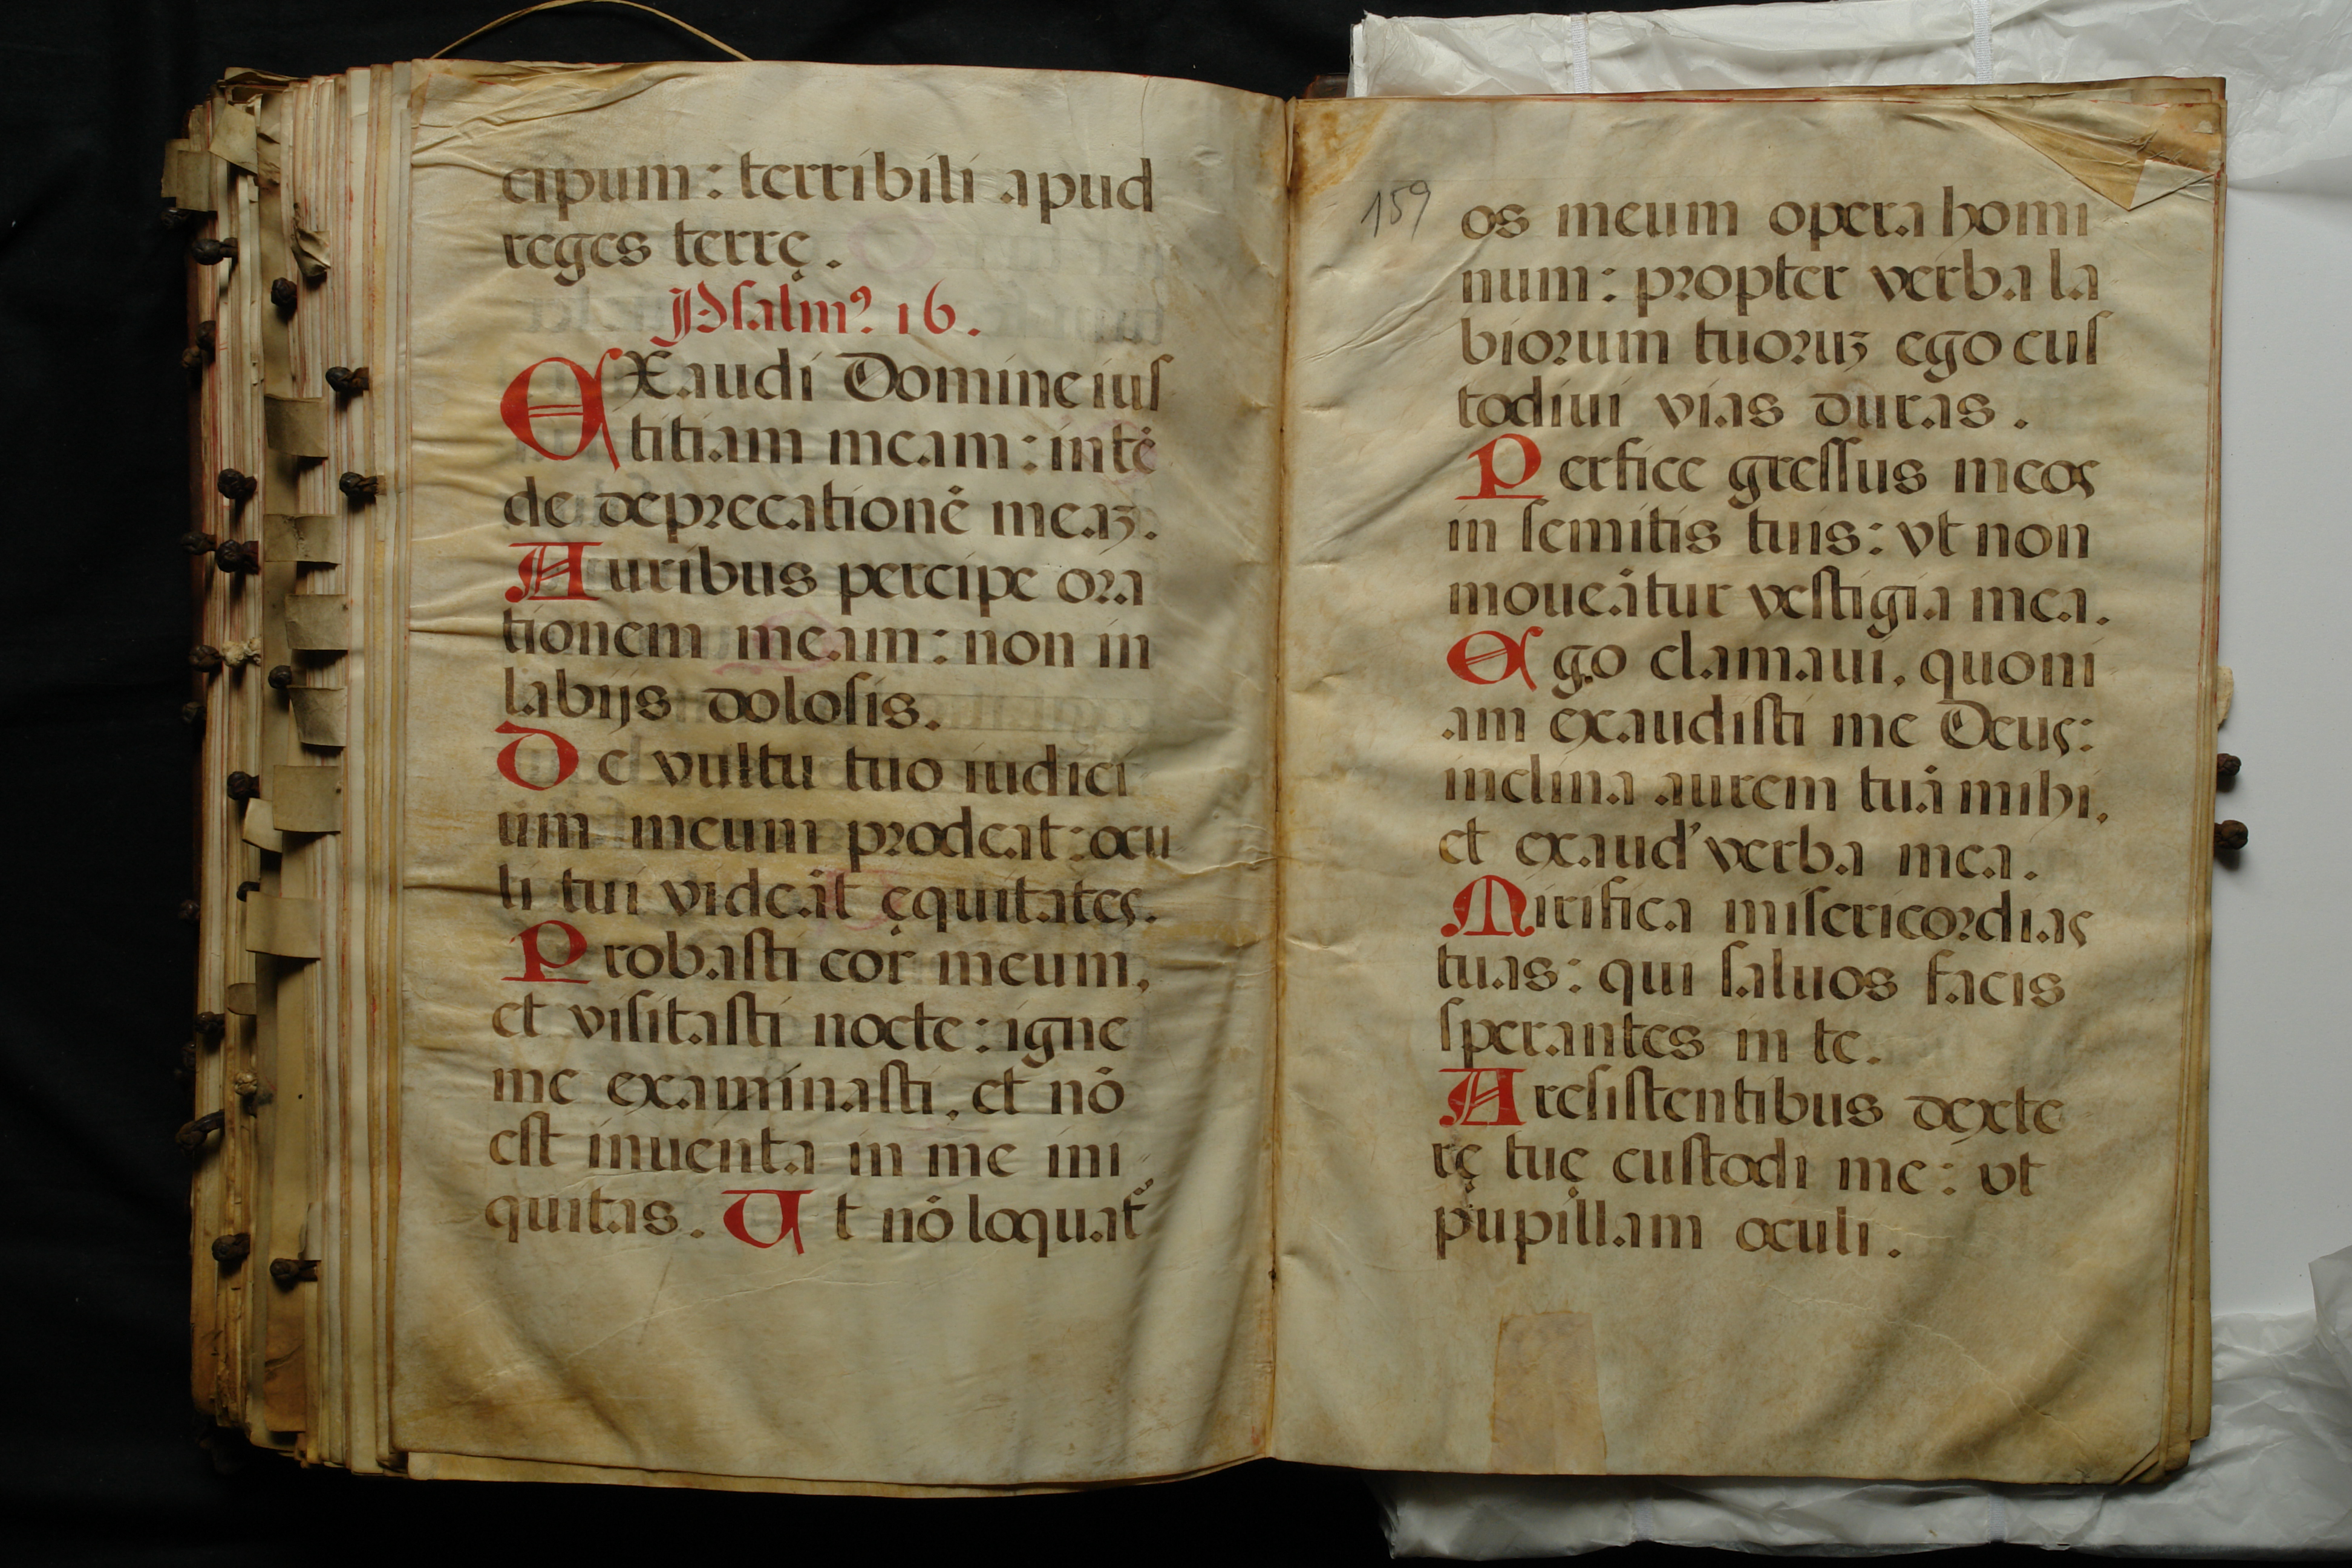 cipum : terribili apud
reges terrę .
Psalmꝰ. 16 .
EXaudi Domine iuſ
titiam meam : intē
de deprecationē meaꝫ .
Auribus percipe ora
tionem meam : non in
labijs doloſis .
De vultu tuo iudici
um meum prodeat : ocu
li tui videāt ęquitates .
Probaſti cor meum ,
et viſitaſti nocte : igne
me examinaſti . et nō
eſt inuenta in me ini
quitas . Ut nō loquat᷑
159
os meum opera homi
num : propter verba la
biorum tuoruꝫ ego cuſ
todiui vias duras .
Perfice greſſus meos
in ſemitis tuis : vt non
moueātur veſtigia mea .
Ego clamaui . quoni
am exaudiſti me Deus :
inclina aurem tuā mihi .
et exaud' verba mea .
Mirifica miſericordias
tuas : qui ſaluos facis
ſperantes in te .
A reſiſtentibus dexte
rę tuę cuſtodi me : vt
pupillam oculi .